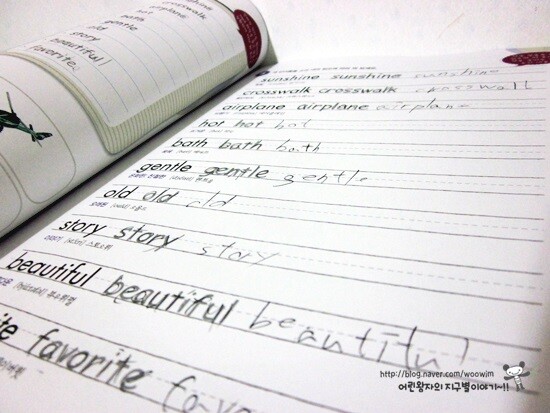 crosswalk
hot
bath
gentle
old
story
beautiful
favorite
sunshine sunshine sunshine
crosswalk crosswalk crosswalk
airplane airplane airplane
hot hot hot
bath bath bath
gentle gentle gentle
old old old
story story story
beautiful beautiful beautiful
favorite
http://blog.naver.com/woowjm
어린왕자의 지구별이야기~!!